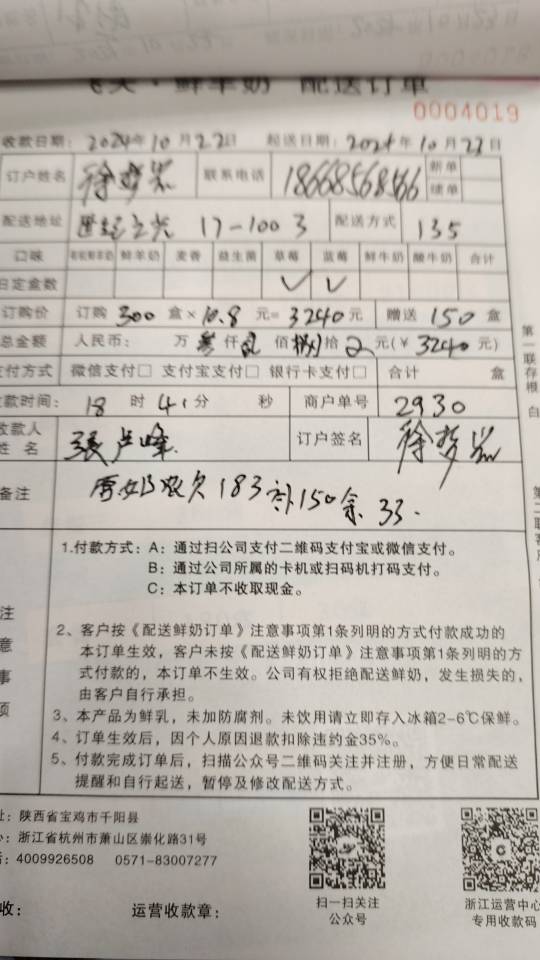 鲜羊奶 配送订单
0004019
收款日期: 2024年10月22日 起送日期: 2024年10月23日
订户姓名 徐 联系电话 18668568566 新单
续单
配送地址 17-1003 配送方式 135
口味 鲜羊奶 麦香 益生菌 草莓 蓝莓 鲜牛奶 酸牛奶 合计
日定盒数 ✓ ✓
订购价 订购 300 盒×10.8 元=3240元 赠送 150 盒
总金额 人民币: 万 叁 仟 贰 佰 拾 元(¥ 3240 元)
支付方式 微信支付□ 支付宝支付□ 银行卡支付□ 合计 盒
收款时间: 18 时 41分 秒 商户单号 2930
收款人
姓 名 张 峰 订户签名 徐梦
备注 欠183 补150余33.
第一联存根 白
第二联客户
注意事项
1.付款方式: A: 通过扫公司支付二维码支付宝或微信支付。
B: 通过公司所属的卡机或扫码机打码支付。
C: 本订单不收取现金。
2、客户按《配送鲜奶订单》注意事项第1条列明的方式付款成功的
本订单生效，客户未按《配送鲜奶订单》注意事项第1条列明的方
式付款的，本订单不生效。公司有权拒绝配送鲜奶，发生损失的，
由客户自行承担。
3、本产品为鲜乳，未加防腐剂。未饮用请立即存入冰箱2-6℃保鲜。
4、订单生效后，因个人原因退款扣除违约金35%。
5、付款完成订单后，扫描公众号二维码关注并注册，方便日常配送
提醒和自行起送，暂停及修改配送方式。
址: 陕西省宝鸡市千阳县
心: 浙江省杭州市萧山区崇化路31号
话: 4009926508 0571-83007277
扫一扫关注
公众号
浙江运营中心
专用收款码
收: 运营收款章: